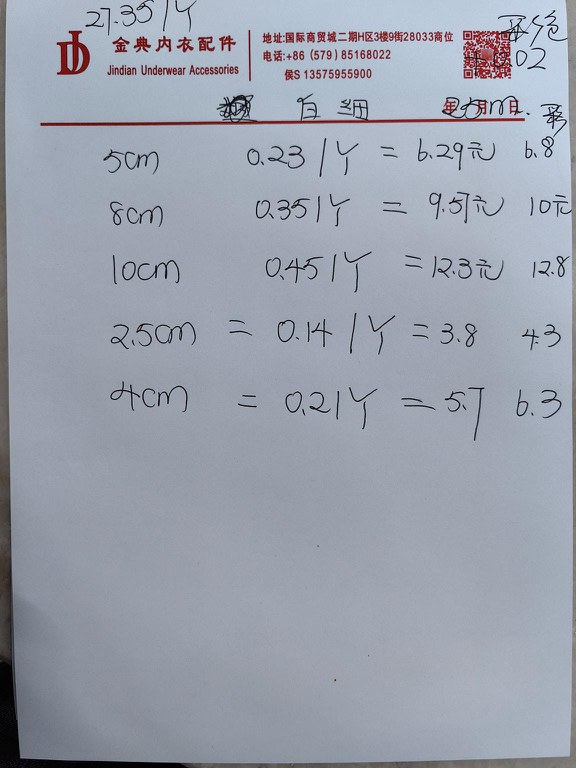 27.35/Y
彩色
+0.02
金典内衣配件
Jindian Underwear Accessories
地址:国际商贸城二期H区3楼9街28033商位
电话:+86 (579) 85168022
侯S 13575955900
白 细 25m. 彩
年 月 日
5cm 0.23/Y = 6.29元 6.8
8cm 0.35/Y = 9.57元 10元
10cm 0.45/Y = 12.3元 12.8
2.5cm = 0.14/Y = 3.8 4.3
4cm = 0.21/Y = 5.7 6.3